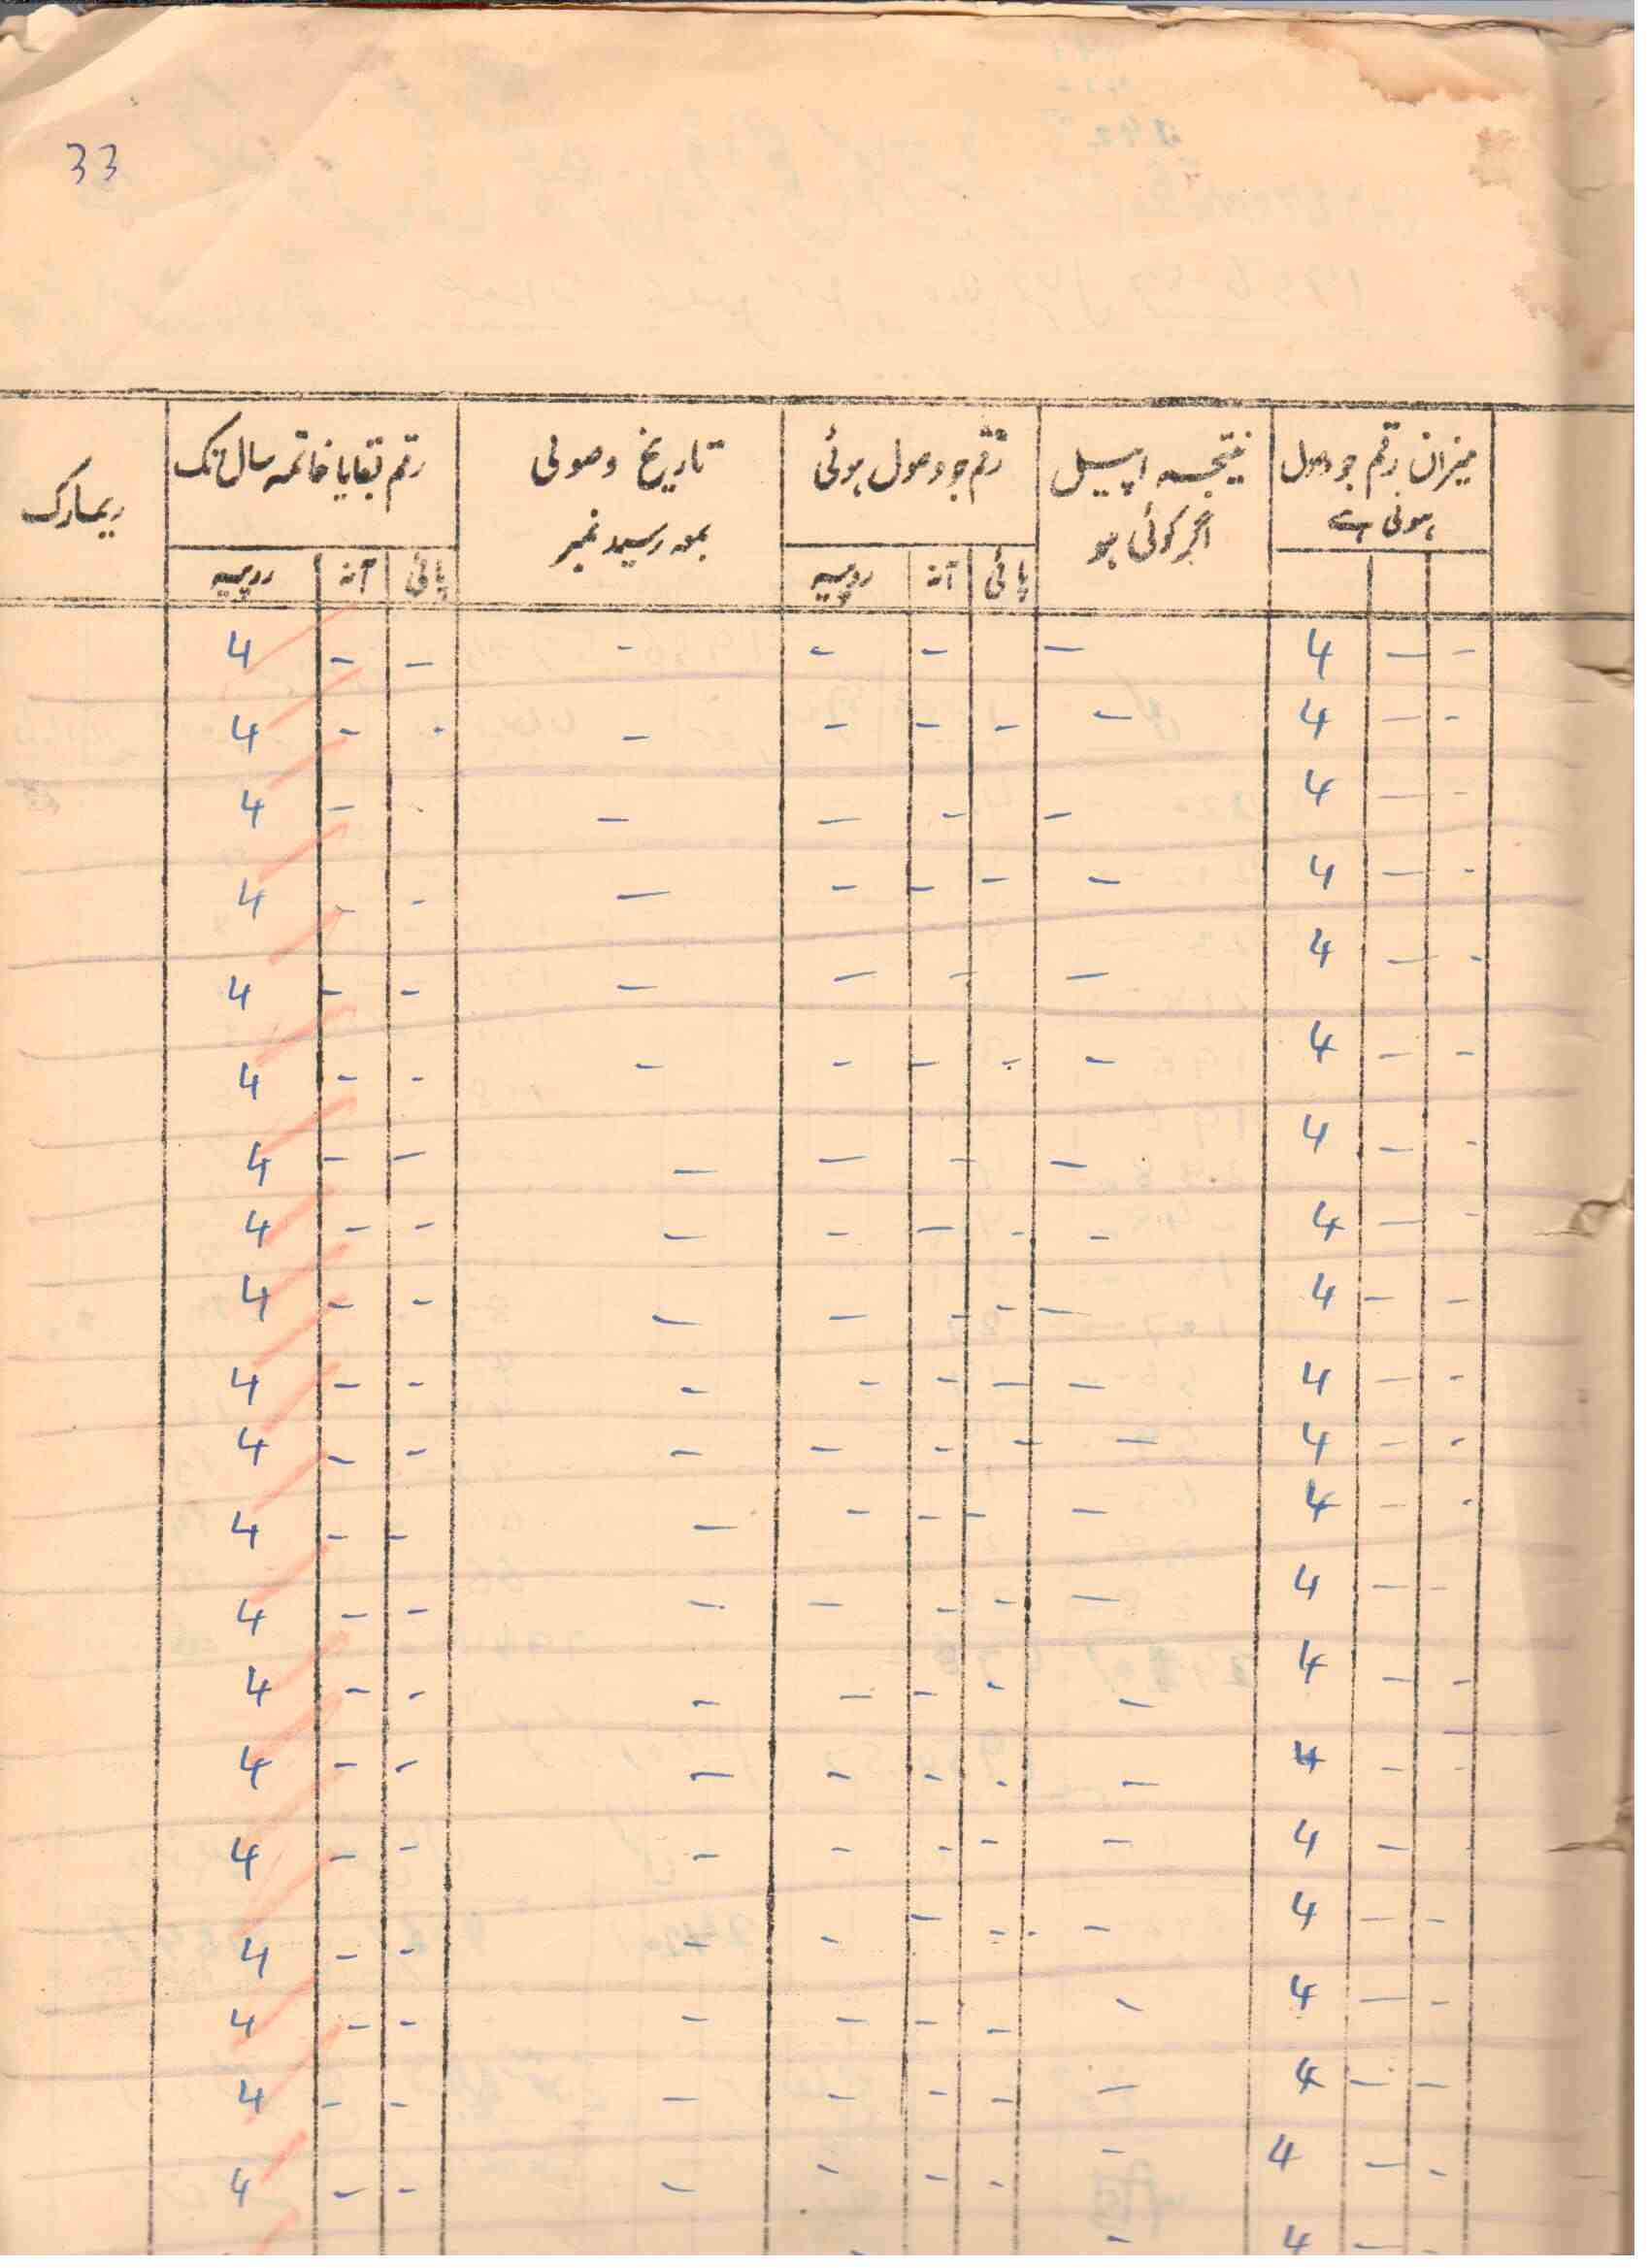 33
میزان رقم جو وصول ہوئی ہے | نتیجہ اپیل اگر کوئی ہو | رقم جو وصول ہوئی | تاریخ وصولی بمعہ رسید نمبر | رقم بقایا خاتمہ سال تک | ریمارک
پائی | آنہ | روپیہ | پائی | آنہ | روپیہ
- — 4 — - - - - - 4
- — 4 — - - - — . - 4
- — 4 — - — — . - 4
- — 4 — - - - — - - 4
- — 4 — - — — - - 4
- — 4 — - - - — - - 4
- — 4 — - — — - - 4
- — 4 - - - - — - - 4
- — 4 — - - - — - - 4
- — 4 — - - - — - - 4
- — 4 — - - - — - - 4
- — 4 — - - - — - - 4
- — 4 — - - - — - - 4
- — 4 — - - - — - - 4
- — 4 — - - - — - - 4
- — 4 — - - - — - - 4
- — 4 — - - - — - - 4
- — 4 — - - - — - - 4
- — 4 — - - - — - - 4
- — 4 — - - - — - - 4
- — 4 —